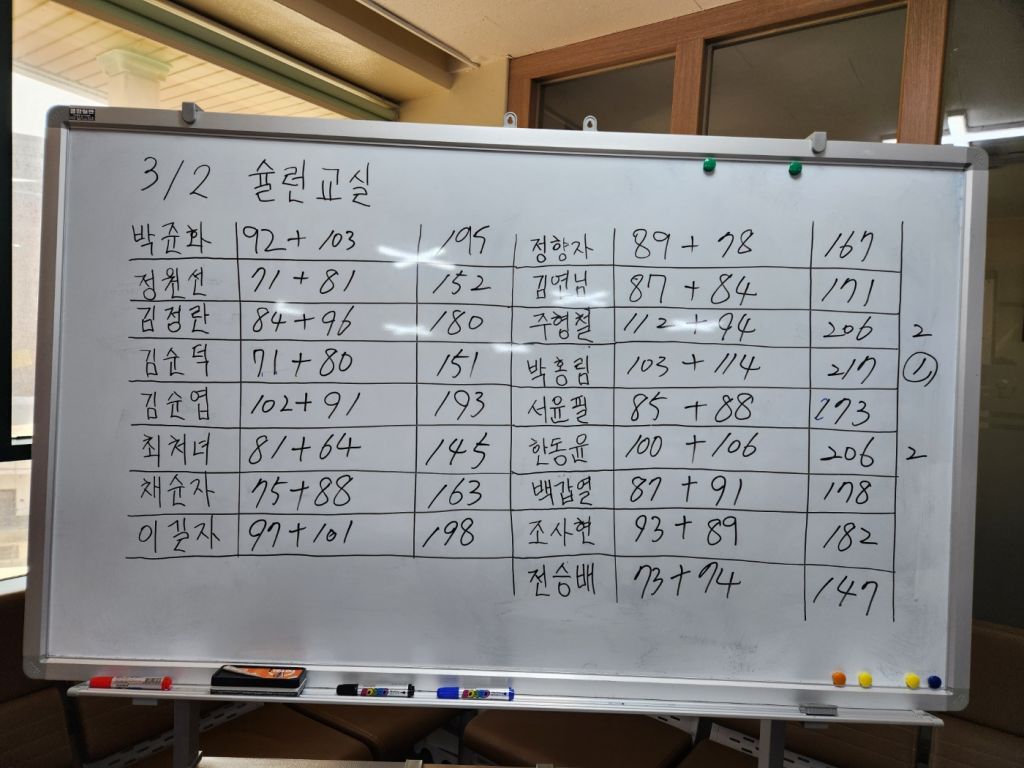 3/2 슐런교실
박준화 92+103 195
정원선 71+81 152
김정란 84+96 180
김순덕 71+80 151
김순엽 102+91 193
최처녀 81+64 145
채순자 75+88 163
이길자 97+101 198
정향자 89+78 167
김연님 87+84 171
주형철 112+94 206 2
박홍림 103+114 217 ①
서윤필 85+88 173
한동윤 100+106 206 2
백갑열 87+91 178
조사현 93+89 182
전승배 73+74 147